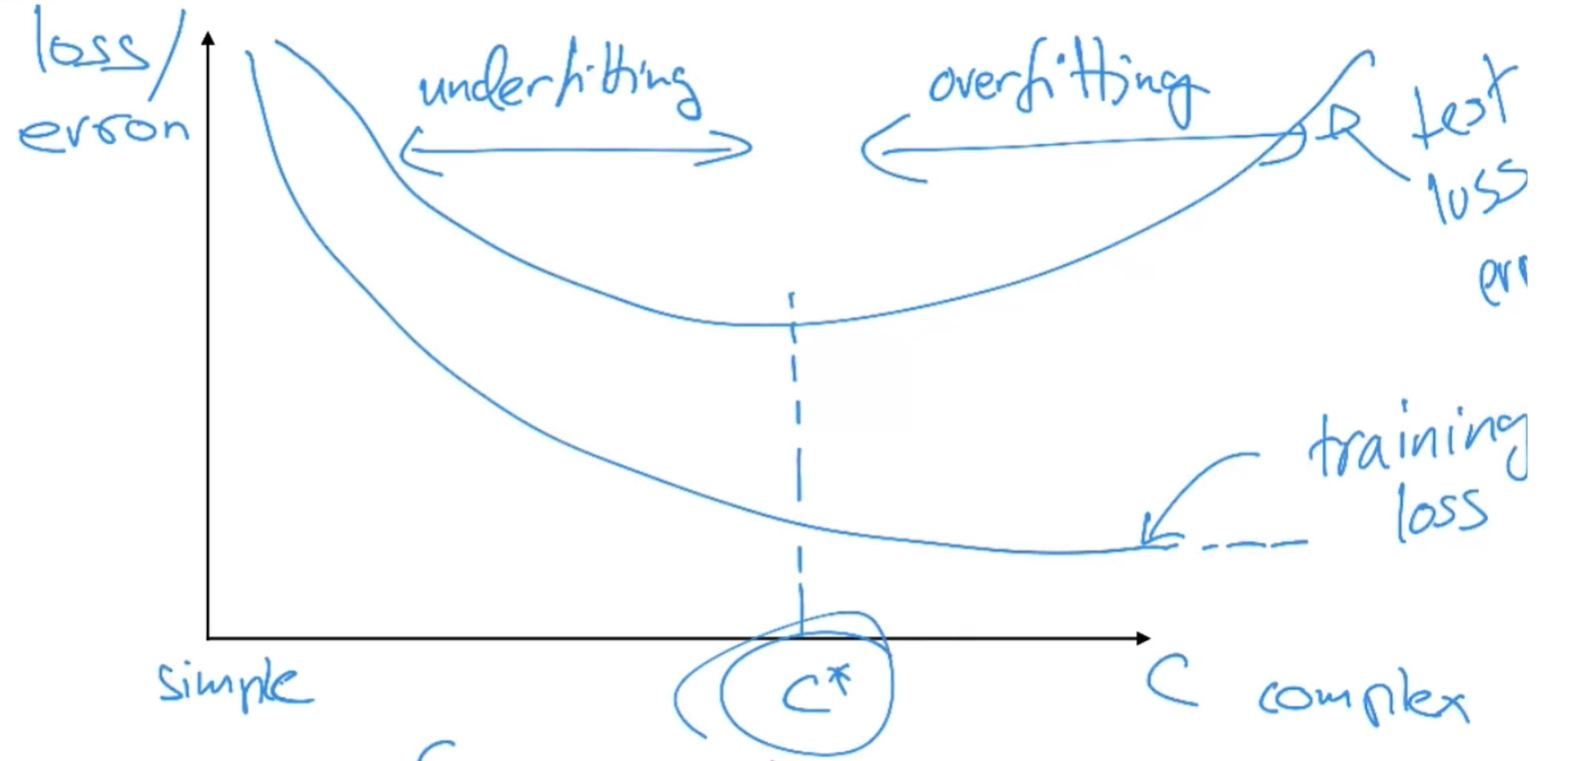 loss/
error
underfitting
overfitting
test
loss
err
training
loss
simple
C*
C complex